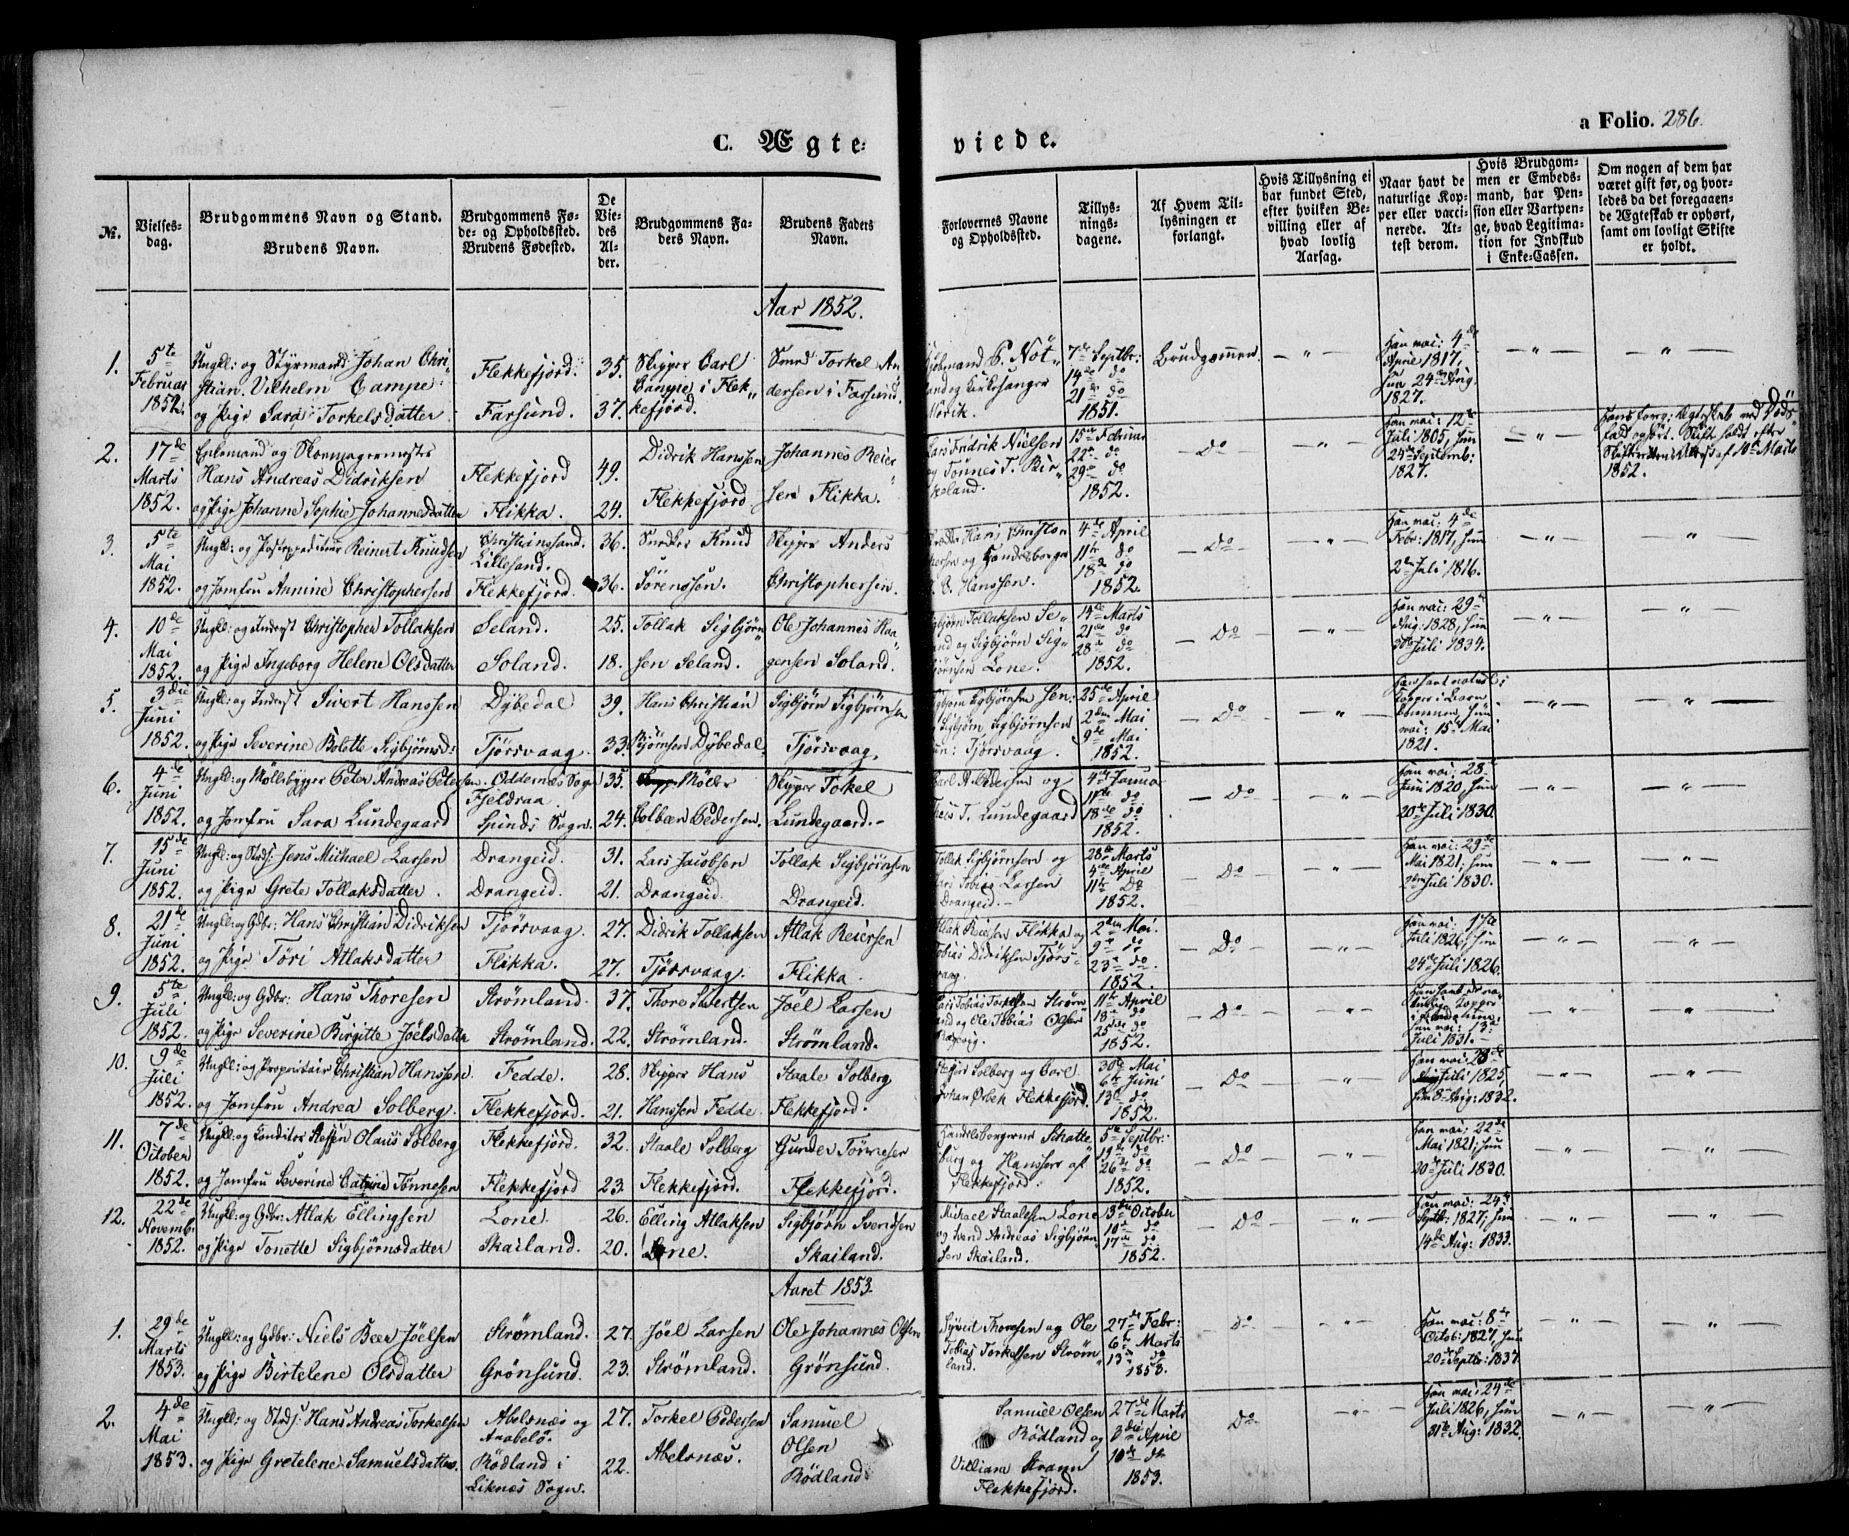 C. Ægte-
viede.
a Folio. 286.
No.
Vielses-
dag.
Brudgommens Navn og Stand.
Brudens Navn.
Brudgommens Fø-
de- og Opholdssted.
Brudens Fødested.
De
Vie-
des
Al-
der.
Brudgommens Fa-
ders Navn.
Brudens Faders
Navn.
Forlovernes Navne
og Opholdssted.
Tillys-
nings-
dagene.
Af Hvem Til-
lysningen er
forlangt.
Hvis Tillysning ei
har fundet Sted,
efter hvilken Be-
villing eller af
hvad lovlig
Aarsag.
Naar havt de
naturlige Kop-
per eller vacci-
nerede. At-
test derom.
Hvis Brudgom-
men er Embeds-
mand, har Pen-
sion eller Vartpen-
ge, hvad Legitima-
tion for Indskud
i Enke-Cassen.
Om nogen af dem har
været gift før, og hvor-
ledes da det foregaaen-
de Ægteskab er ophørt,
samt om lovligt Skifte
er holdt.
Aar 1852.
1.
5te
Februar
1852.
Ungk: og Styrmand Johan Chri-
stian Vilhelm Campe
og Pige Sara Torkelsdatter
Flekkefjord.
Farsund.
35.
37.
Skipper Carl
Campe i Flek-
kefjord.
Smed Torkel An-
dersen i Farsund.
7de Septbr:
14de do
21de do
1851.
Brudgommen.
Han vac: 4de
April 1817,
hun 24de Aug.
1827.
2.
17de
Marts
1852.
Enkemand og Skomagermester
Hans Andreas Didriksen
og Pige Johanne Sophie Johannesdatter
Flekkefjord
Flikka.
49.
24.
Didrik Hanssen
Flekkefjord
Johannes Reier-
sen Flikka.
Lars Fredrik Nielsen
og Tønnes T. Bir-
keland.
15de Februar
22de do
29de do
1852.
Do
Han vac: 12te
Juli 1805, hun
24de Septemb:
1827.
Hans forrg: Ægteskab ved Døds-
fald ophørt. Skifte holdt efter
Skifterettens Attest af 10de Marts
1852.
3.
5te
Mai
1852.
Ungk: og Postexpediteur Reinert Knudsen
og Jomfru Annine Christophersen
Christianssand.
Lillesand.
Flekkefjord.
36.
36.
Snedker Knud
Sörenssen.
Skipper Anders
Christophersen.
4de April
11te do
18de do
1852.
Do
Han vac: 4de
Febr: 1817, hun
2den Juli 1816.
4.
10de
Mai
1852.
Ungk: og Inderst Christopher Tollaksen
og Pige Ingeborg Helene Olsdatter
Seland.
Soland.
25.
18.
Tollak Sigbjørn-
sen Seland.
Ole Johannes Haa-
gensen Soland.
Sigbjørn Tollaksen Se-
land og Sigbjørn Sig-
bjørnsen Lone.
14de Marts
21de do
28de do
1852.
Do
Han vac: 29de
Aug: 1828, hun
30te Juli 1834.
5.
3die
Juni
1852.
Ungk: og Inderst Sivert Hanssen
og Pige Severine Bolette Sigbjørnsd:
Dybedal
Tjørsvaag.
39.
33.
Hans Christian
Bjørnsen Dybedal
Sigbjørn Sigbjørnsen
Tjørsvaag.
25de April
2den Mai
9de Mai
1852.
Do
Mai
1821.
6.
4de
Juni
1852.
Ungk: og Møllebygger Peter Andreas Petersen
og Jomfru Sara Lundegaard
Oddernes Sogn
Fjeldraa
Spinds Sogn.
35.
24.
Møller
Colbæn Pedersen.
Skipper Torkel
Lundegaard.
4de Januar
11te do
18de do
1852.
Do
Han vac: 28de
Juni 1820, hun
20de Juli 1830.
7.
15de
Juni
1852.
Ungk: og Strdf: Jens Michael Larsen
og Pige Grete Tollaksdatter.
Drangeid.
Drangeid.
31.
21.
Lars Jacobsen
Drangeid.
Tollak Sigbjørnsen
Drangeid.
Tollak Sigbjørnsen og
Lars Tobias Larsen
Drangeid.
28de Marts
4de April
11te Do
1852.
Do
Han vac: 29de
Mai 1821, hun
2den Juli 1830.
8.
21de
Juni
1852.
Ungk: og Gdbr: Hans Christian Didriksen
og Pige Töri Atlaksdatter
Tjørsvaag.
Flikka.
27.
27.
Didrik Tollaksen
Tjørsvaag.
Atlak Reiersen
Flikka.
Atlak Reiersen Flikka og
Tobias Didriksen Tjørs-
vaag.
2den Mai.
9de do
23de do
1852.
Do
Juli 1826, hun
24de Juli 1826.
9.
5te
Juli
1852.
Ungk: og Gdbr: Hans Thoresen
og Pige Severine Birgitte Joëlsdatter
Strømland.
Strømland.
37.
22.
Thore Sivertsen
Strømland.
Joël Larsen
Strømland.
Lars Tobias Torkelsen Strøm-
land og Ole Tobias Olsen
11te April
18de do
25de do
1852.
Do
hun vac: 13de
Juli 1831.
10.
9de
Juli
1852.
Ungk: og Proprietair Christian Hanssen
og Jomfru Andrea Solberg.
Fedde.
Flekkefjord.
28.
21.
Skipper Hans
Hanssen Fedde.
Staale Solberg
Flekkefjord.
30te Mai
6te Juni
13de do
1852.
Do
Han vac: 28de
Juli 1825,
hun 8de Aug: 1832.
11.
7de
October
1852.
Ungk: og Conditor Steffen Olaus Solberg
og Jomfru Severine Catrine Tönnesen
Flekkefjord.
Flekkefjord
32.
23.
Staale Solberg
Flekkefjord.
Gunder Tönnesen
Flekkefjord.
Handelsborgerne Schatte-
burg og Hanssen af
Flekkefjord.
5te Septbr:
19de do
26de do
1852.
Do
Han vac: 22de
Mai 1821, hun
20de Juli 1830.
12.
22de
Novemb:
1852.
Ungk: og Gdbr: Atlak Ellingsen
og Pige Tonette Sigbjørnsdatter
Lone.
Skailand.
26.
20.
Elling Atlaksen
Lone.
Sigbjørn Svendsen
Skailand.
Michael Staalesen Lone
og Svend Andreas Sigbjørn-
sen Skailand.
October
10de do
17de do.
1852.
Do
Han vac: 24de
Septb: 1827, hun
14de Aug: 1833.
Aaret 1853.
1.
29de
Marts
1853.
Ungk: og Gdbr: Niels Beer Joëlsen
og Pige Birtelene Olsdatter
Strømland.
Grönsund.
27.
23.
Joël Larsen
Strømland.
Ole Johannes Olsen
Grönsund.
Syvert Thoresen og Ole
Tobias Torkelsen Strøm-
land.
27de Febr:
6te Marts
13de do
1853.
Do
Han vac: 8de
Octob: 1827, hun
20de Septb: 1837.
2.
4de
Mai
1853.
Ungk: og Strdf: Hans Andreas Torkelsen
og Pige Gretelene Samuelsdatter.
Abelsnæs og
Anabelö.
Rödland i
Liknes Sogn.
27.
22.
Torkel Pedersen
Abelsnæs.
Samuel
Olsen
Rödland.
Samuel Olsen
Rödland og
Villiam Krann
Flekkefjord.
27de Marts
3die April
10de do
1853.
Do
Han vac: 24de
Juli 1826, hun
31te Aug: 1832.